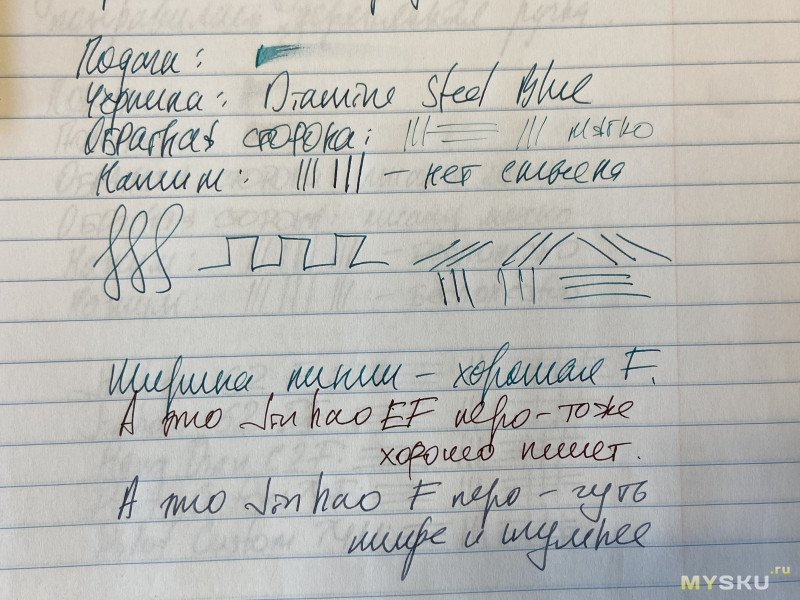 Подача:
Чернила: Diamine Steel Blue
Обратная сторона: мягко
Нажим: – нет смысла
Ширина линии – хорошая F.
А это Jinhao EF перо – тоже
хорошо пишет.
А это Jinhao F перо – чуть
шире и шумнее
MYSKU.ru